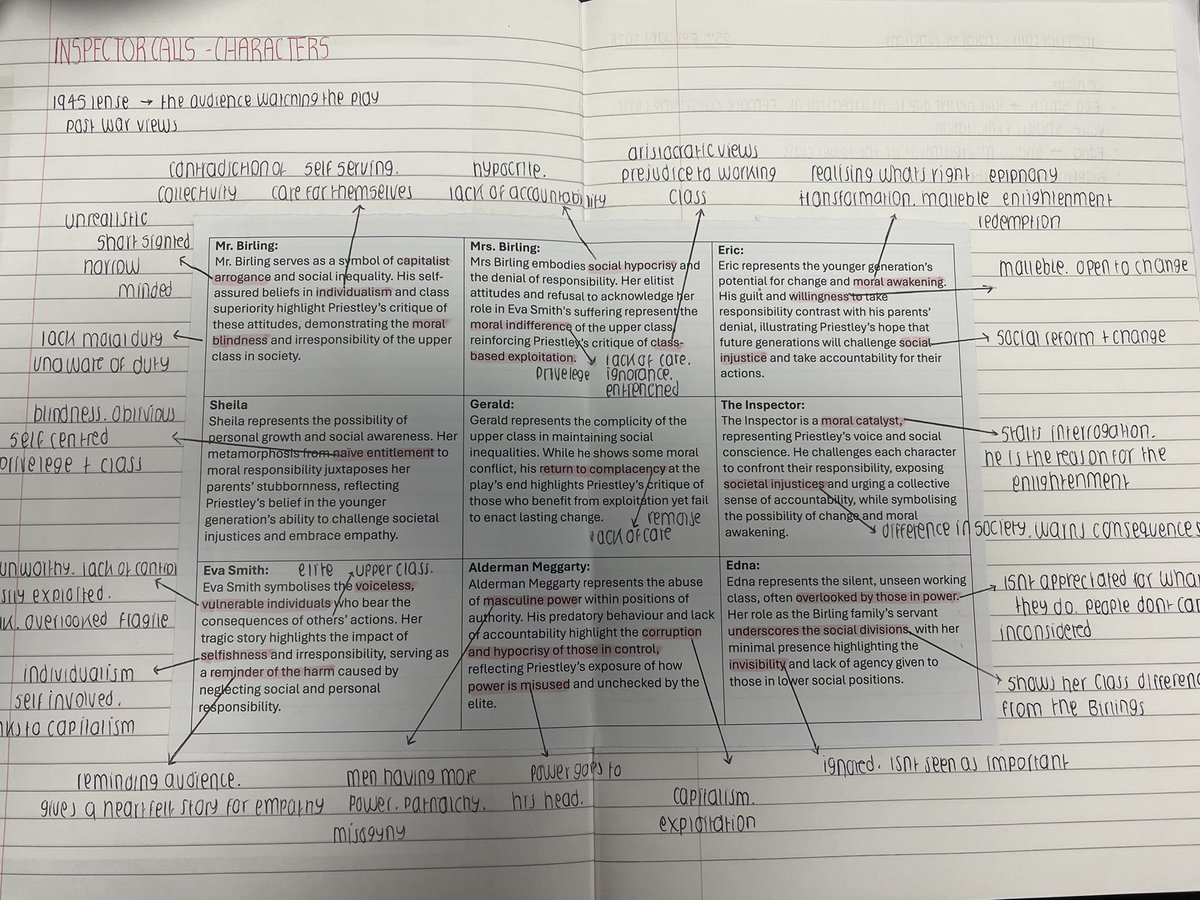 INSPECTOR CALLS - CHARACTERS
1945 lense → the audience watching the play
post war views
contradiction of
collectivity
self serving.
care for themselves
hypocrite.
lack of accountability
aristocratic views
prejudice to working
class
realising whats right epiphony
transformation. malleble enlightenment
redemption
unrealistic
short sighted
narrow
minded
lack moral duty
unaware of duty
blindness. oblivious
self centred
privelege + class
Mr. Birling:
Mr. Birling serves as a symbol of capitalist
arrogance and social inequality. His self-
assured beliefs in individualism and class
superiority highlight Priestley's critique of
these attitudes, demonstrating the moral
blindness and irresponsibility of the upper
class in society.
Mrs. Birling:
Mrs Birling embodies social hypocrisy and
the denial of responsibility. Her elitist
attitudes and refusal to acknowledge her
role in Eva Smith's suffering represent the
moral indifference of the upper class,
reinforcing Priestley's critique of class-
based exploitation.
lack of care.
privelege ignorance.
entrenched
Eric:
Eric represents the younger generation's
potential for change and moral awakening.
His guilt and willingness to take
responsibility contrast with his parents'
denial, illustrating Priestley's hope that
future generations will challenge social
injustice and take accountability for their
actions.
malleble. open to change
social reform + change
Sheila
Sheila represents the possibility of
personal growth and social awareness. Her
metamorphosis from naive entitlement to
moral responsibility juxtaposes her
parents' stubbornness, reflecting
Priestley's belief in the younger
generation's ability to challenge societal
injustices and embrace empathy.
Gerald:
Gerald represents the complicity of the
upper class in maintaining social
inequalities. While he shows some moral
conflict, his return to complacency at the
play's end highlights Priestley's critique of
those who benefit from exploitation yet fail
to enact lasting change.
remorse
lack of care
The Inspector:
The Inspector is a moral catalyst,
representing Priestley's voice and social
conscience. He challenges each character
to confront their responsibility, exposing
societal injustices and urging a collective
sense of accountability, while symbolising
the possibility of change and moral
awakening.
starts interrogation.
he is the reason for the
enlightenment
difference in society. warns consequences
unworthy. lack of control
exploited.
overlooked fragile
individualism
self involved.
to capitalism
Eva Smith: elite upper class.
Eva Smith symbolises the voiceless,
vulnerable individuals who bear the
consequences of others' actions. Her
tragic story highlights the impact of
selfishness and irresponsibility, serving as
a reminder of the harm caused by
neglecting social and personal
responsibility.
Alderman Meggarty:
Alderman Meggarty represents the abuse
of masculine power within positions of
authority. His predatory behaviour and lack
of accountability highlight the corruption
and hypocrisy of those in control,
reflecting Priestley's exposure of how
power is misused and unchecked by the
elite.
Edna:
Edna represents the silent, unseen working
class, often overlooked by those in power.
Her role as the Birling family's servant
underscores the social divisions, with her
minimal presence highlighting the
invisibility and lack of agency given to
those in lower social positions.
isnt appreciated for what
they do. people dont
inconsidered
shows her class
from the Birlings
reminding audience.
gives a heartfelt story for empathy
men having more
power. patriachy.
misogyny
power goes to
his head.
capitalism.
exploitation
ignored. isnt seen as important